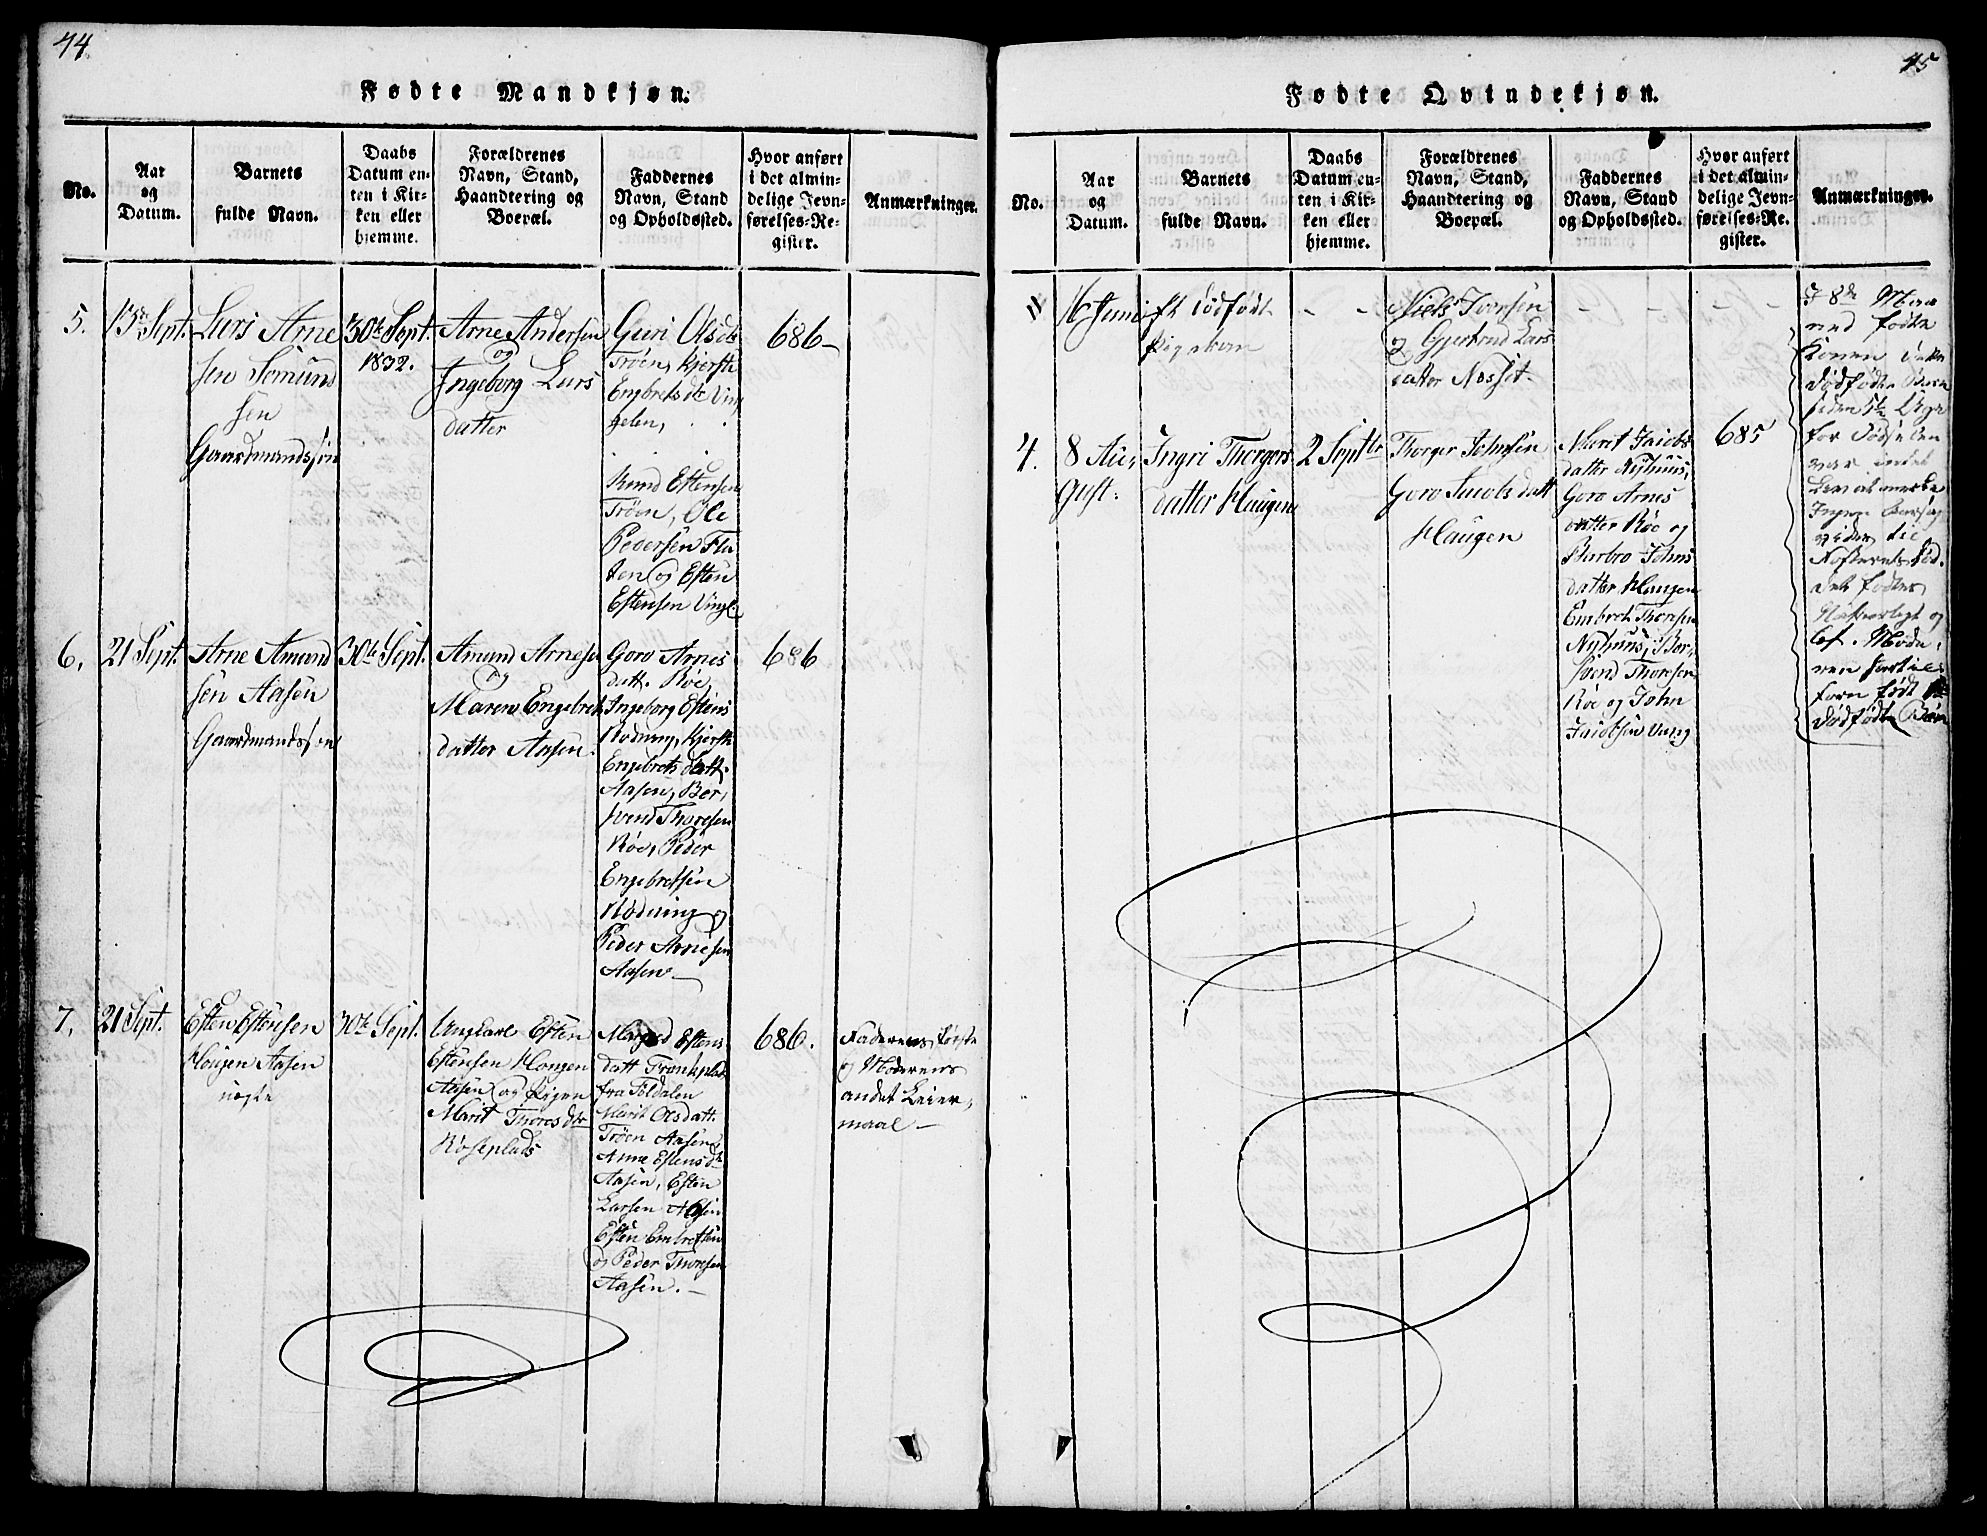 74.
Fødte Mandkjøn.
No.
Aar
og
Datum.
Barnets
fulde Navn.
Daabs
Datum en-
ten i Kir-
ken eller
hjemme.
Forældrenes
Navn, Stand,
Haandtering og
Boepæl.
Faddernes
Navn, Stand
og Opholdssted.
Hvor anført
i det almin-
delige Jevn-
førelses-Re-
gister.
Anmærkninger.
5.
13de Sept.
Lars Arne
sen Semund
sen
Gaardmandssøn
30te Sept.
1832.
Arne Andersen
og
Ingeborg Lars
datter
Guri Olsdtr
Trøen, Kjersti
Engebretsdtr Vin
gelen,
Simd Estensen
Trøen, Ole
Pedersen Fla
ten og Esten
Estensen Vingl
686-
6.
21 Sept.
Arne Amund
sen Aasen
Gaardmandssøn
30te Sept.
Amund Arnesen
og
Maren Engebret
datter Aasen.
Goro Arnes
datt. Røe
Ingeborg Estens
Nødning, Kjersti
Engebrets datt.
Aasen, Ber,
svend Thoresen
Røe, Peder
Engebretsen
Nødning og
Peder Arnesen
Aasen-
686
7.
21 Sept.
Esten Estensen
Hougen Aasen
uægte
30te Sept.
Ungkarl Esten
Estensen Hougen
Aasen og Pigen
Marit Thores dtr
Røseplads
Estens
datt Trønkplads
fra Foldalen
Marit Olsdatt.
Trøen Aasen,
Anne Estensdtr
Aasen, Esten
Larsen Aasen
Esten Embretsen
og Peder Thoresen
Aasen.-
686.
Faderens første
og Moderens
andet Leier,
maal-
75
Fødte Qvindekjøn.
No.
Aar
og
Datum.
Barnets
fulde Navn.
Daabs
Datum en-
ten i Kir-
ken eller
hjemme.
Forældrenes
Navn, Stand,
Haandtering og
Boepæl.
Faddernes
Navn, Stand
og Opholdssted.
Hvor anført
i det almin-
delige Jevn-
førelses-Re-
gister.
Anmærkninger.
16 Juni
Et dødfødt
Pigebarn
- -
Niels Iversen
og Gjertrud Lars
datter Nosset.
- - -
- -
I 8de Maa
ned fødte
Konen dette
dødfødte Barn
siden
for Fødselen
var intet
Liv at mærke
Ingen Aarsag
vides til
Fosterets Død.
det fødtes
og
Mode,
ren
forn født
dødfødte Børn
4.
8 Au,
gust.
Ingri Thorgers
datter Haugen
2 Septbr
Thorger Johnsen
Goro Jacobs datt
Haugen
Marit Jacobs
datter Nyhuus,
Goro Arnes
datter Røe og
Barbro Johns
datter Haugen
Embret Thoresen
Nyhuus, Ber,
svend Thoresen
Røe og John
Jacobsen Vang
685